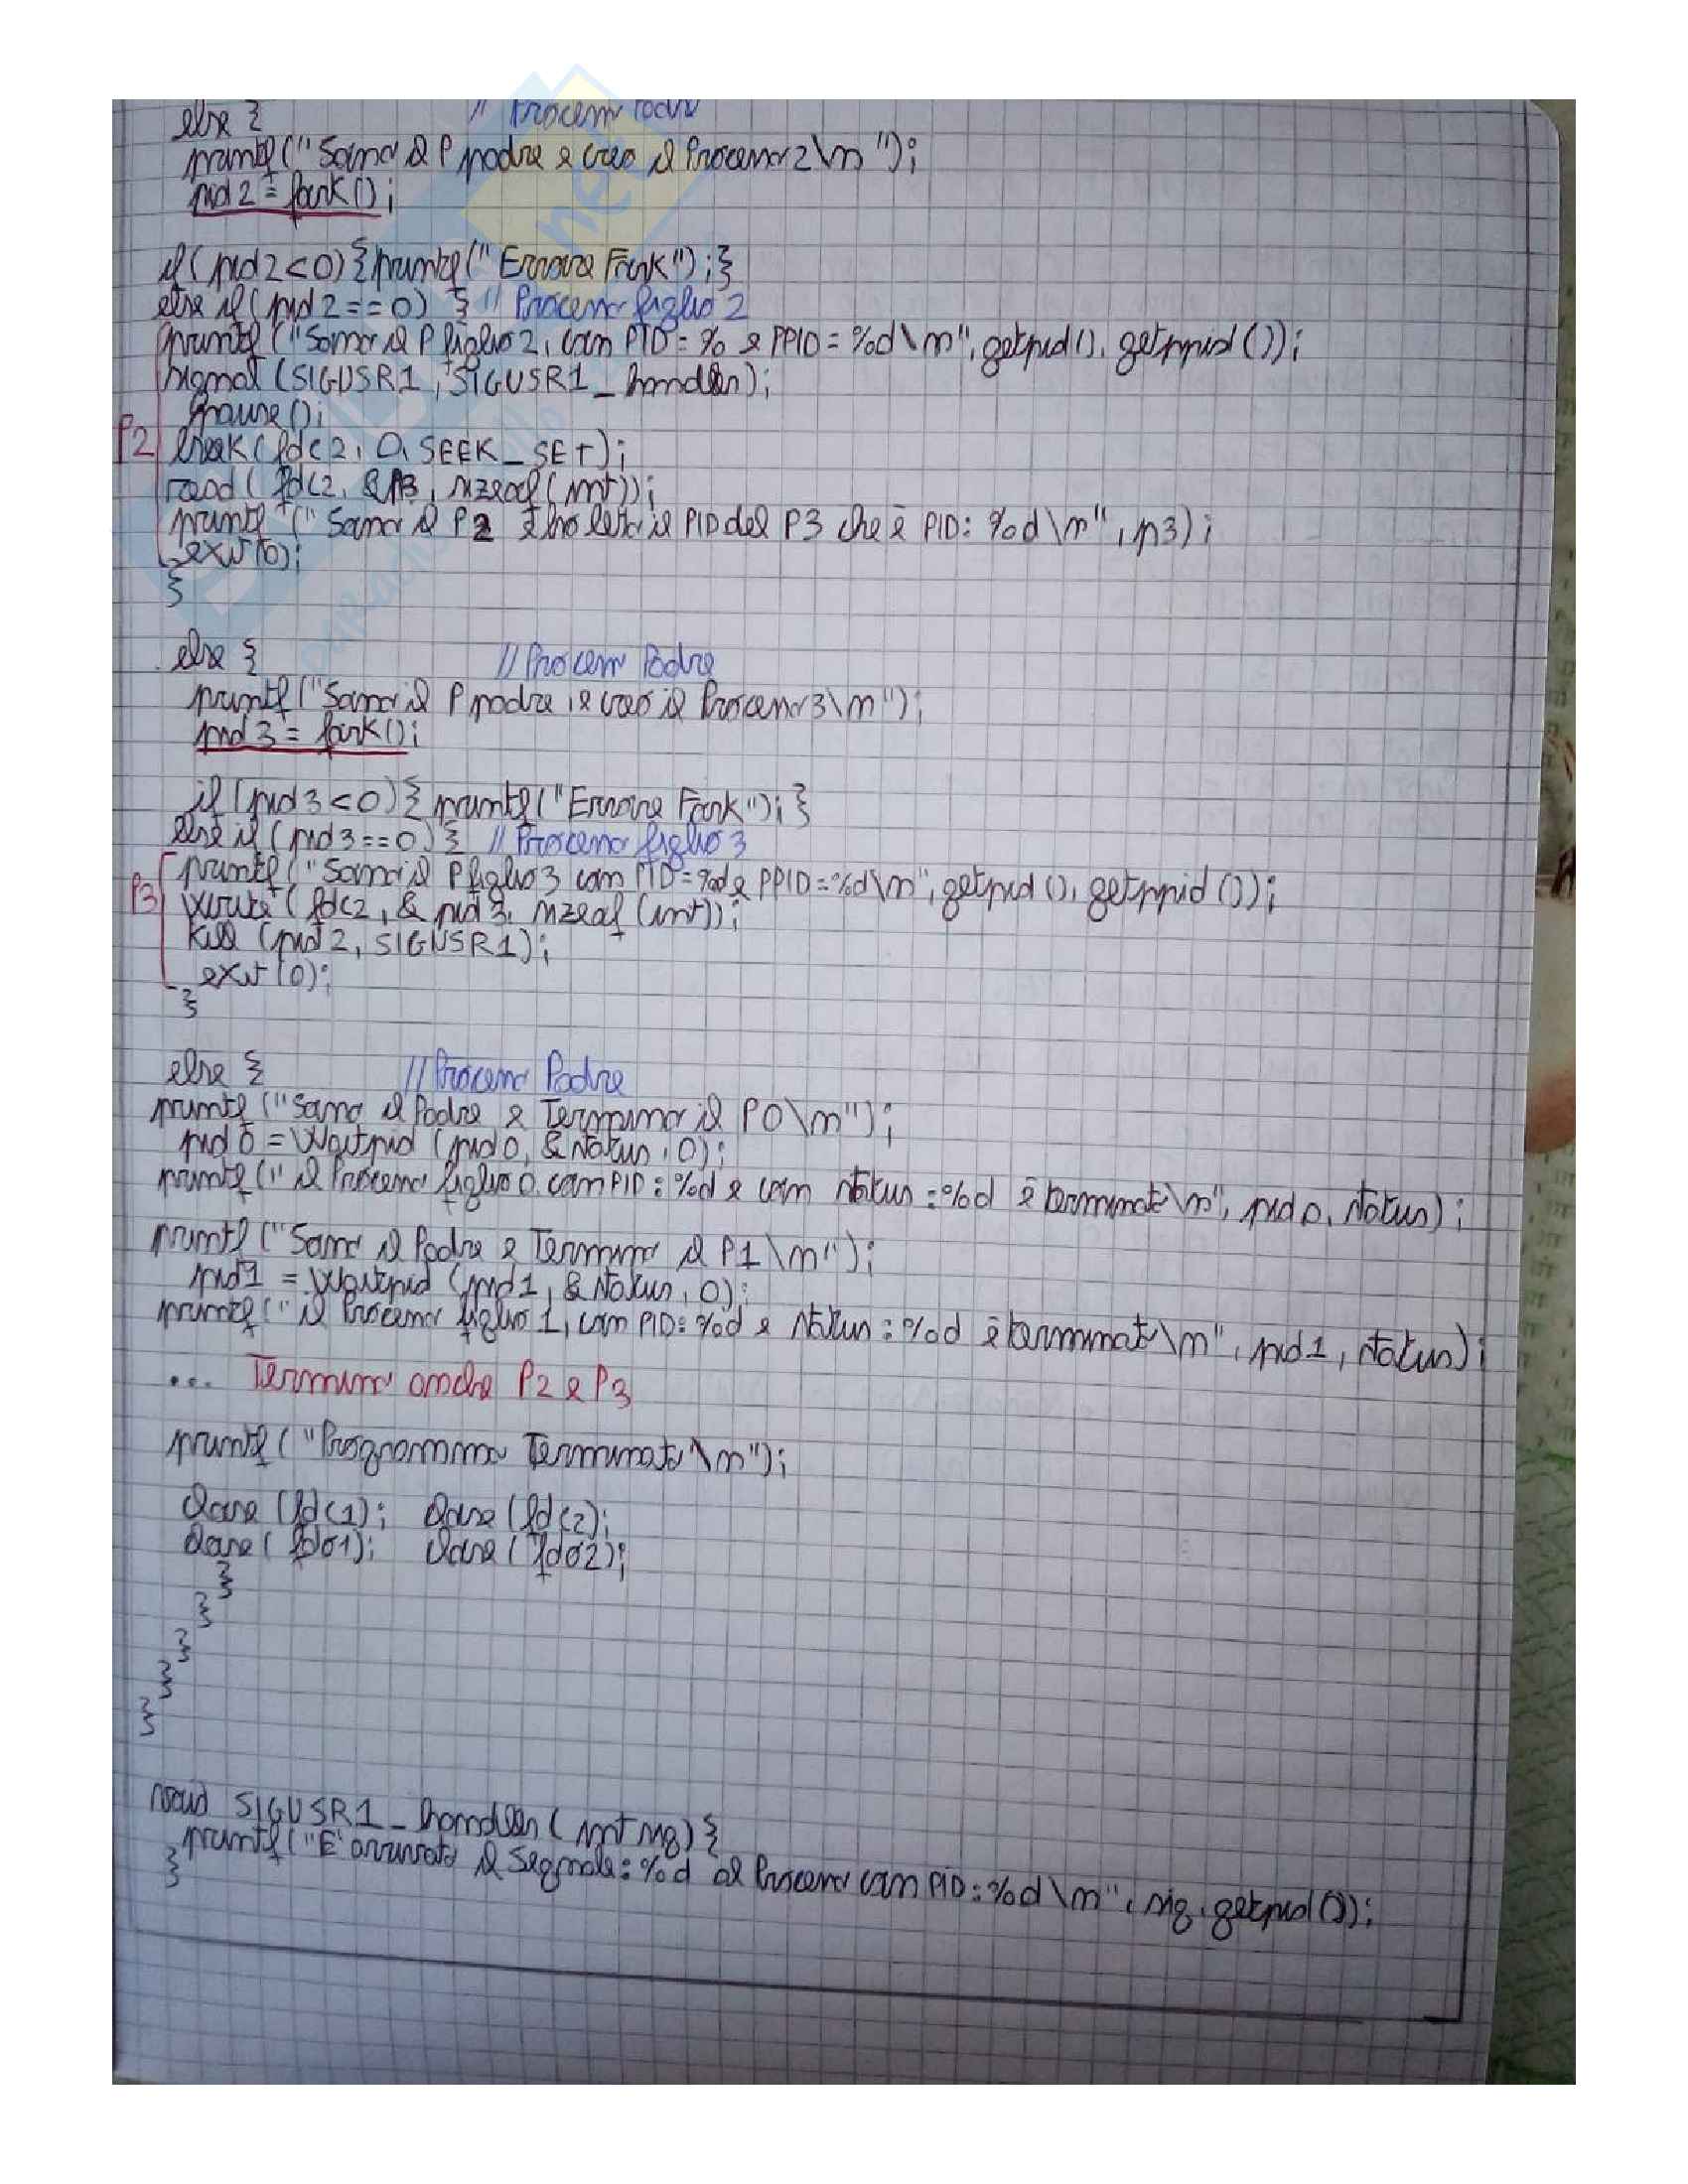 else { // Processo Padre
printf("Sono il P padre e creo il Processo 2\n");
pid2 = fork();
if(pid2<0){printf("Errore Fork");}
else if(pid2==0) { // Processo figlio 2
printf("Sono il P figlio 2, con PID=% e PPID=%d\n", getpid(), getppid());
signal(SIGUSR1, SIGUSR1_handler);
pause();
P2 lseek(fdc2, 0, SEEK_SET);
read(fdc2, &p3, sizeof(int));
printf("Sono il P2 e ho letto il PID del P3 che è PID: %d\n", p3);
exit(0);
}
else { // Processo Padre
printf("Sono il P padre, e creo il Processo 3\n");
pid3 = fork();
if(pid3<0){printf("Errore Fork");}
else if(pid3==0){ // Processo figlio 3
printf("Sono il P figlio 3 con PID=%d e PPID=%d\n", getpid(), getppid());
P3 write(fdc2, & pid3, sizeof(int));
kill(pid2, SIGUSR1);
exit(0);
}
else { // Processo Padre
printf("Sono il Padre e Termino il P0\n");
pid0 = waitpid(pid0, &status, 0);
printf("il Processo figlio 0, con PID:%d e con status:%d è terminato\n", pid0, status);
printf("Sono il Padre e Termino il P1\n");
pid1 = waitpid(pid1, &status, 0);
printf("il Processo figlio 1, con PID:%d e status:%d è terminato\n", pid1, status);
... Termino anche P2 e P3
printf("Programma Terminato\n");
close(fdc1); close(fdc2);
close(fdo1); close(fdo2);
}
}
}
}
}
void SIGUSR1_handler(int sig){
printf("E' arrivato il Segnale:%d al Processo con PID:%d\n", sig, getpid());
}